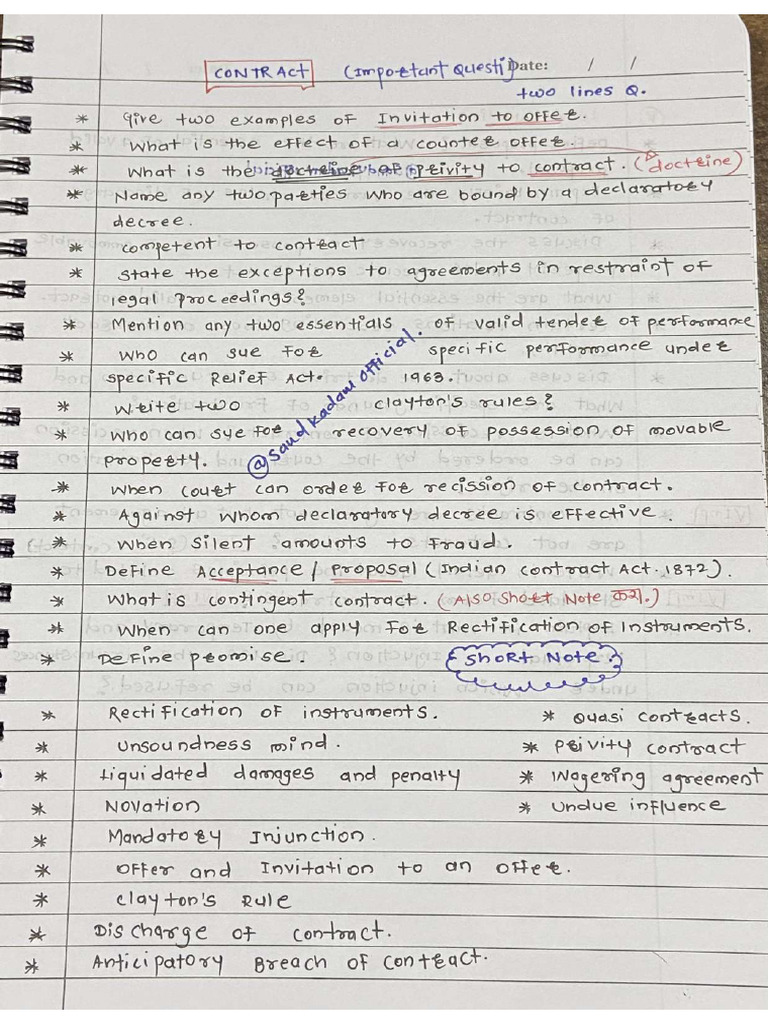 CONTRACT (Important Questi) Date: / /
two lines Q.
* Give two examples of Invitation to offer.
* What is the effect of a counter offer.
* What is the doctrine of privity to contract. (doctrine)
* Name any two parties who are bound by a declaratory
decree.
* competent to contract
* state the exceptions to agreements in restraint of
legal proceedings?
* Mention any two essentials of valid tender of performance
* Who can sue for specific performance under
specific Relief Act. 1963.
* Write two clayton's rules?
* Who can sye for recovery of possession of movable
property.
@saud kadam official.
* When court can order for recission of contract.
* Against whom declaratory decree is effective.
* When silent amounts to fraud.
* Define Acceptance / Proposal (Indian contract Act. 1872).
* What is contingent contract. (Also Short Note करा.)
* When can one apply for Rectification of Instruments.
* Define promise. Short Note.
* Rectification of instruments. * Quasi contracts.
* Unsoundness mind. * Privity contract
* Liquidated damages and penalty * Wagering agreement
* Novation * Undue influence
* Mandatory Injunction.
* Offer and Invitation to an offer.
* Clayton's Rule
* Discharge of contract.
* Anticipatory Breach of Contract.